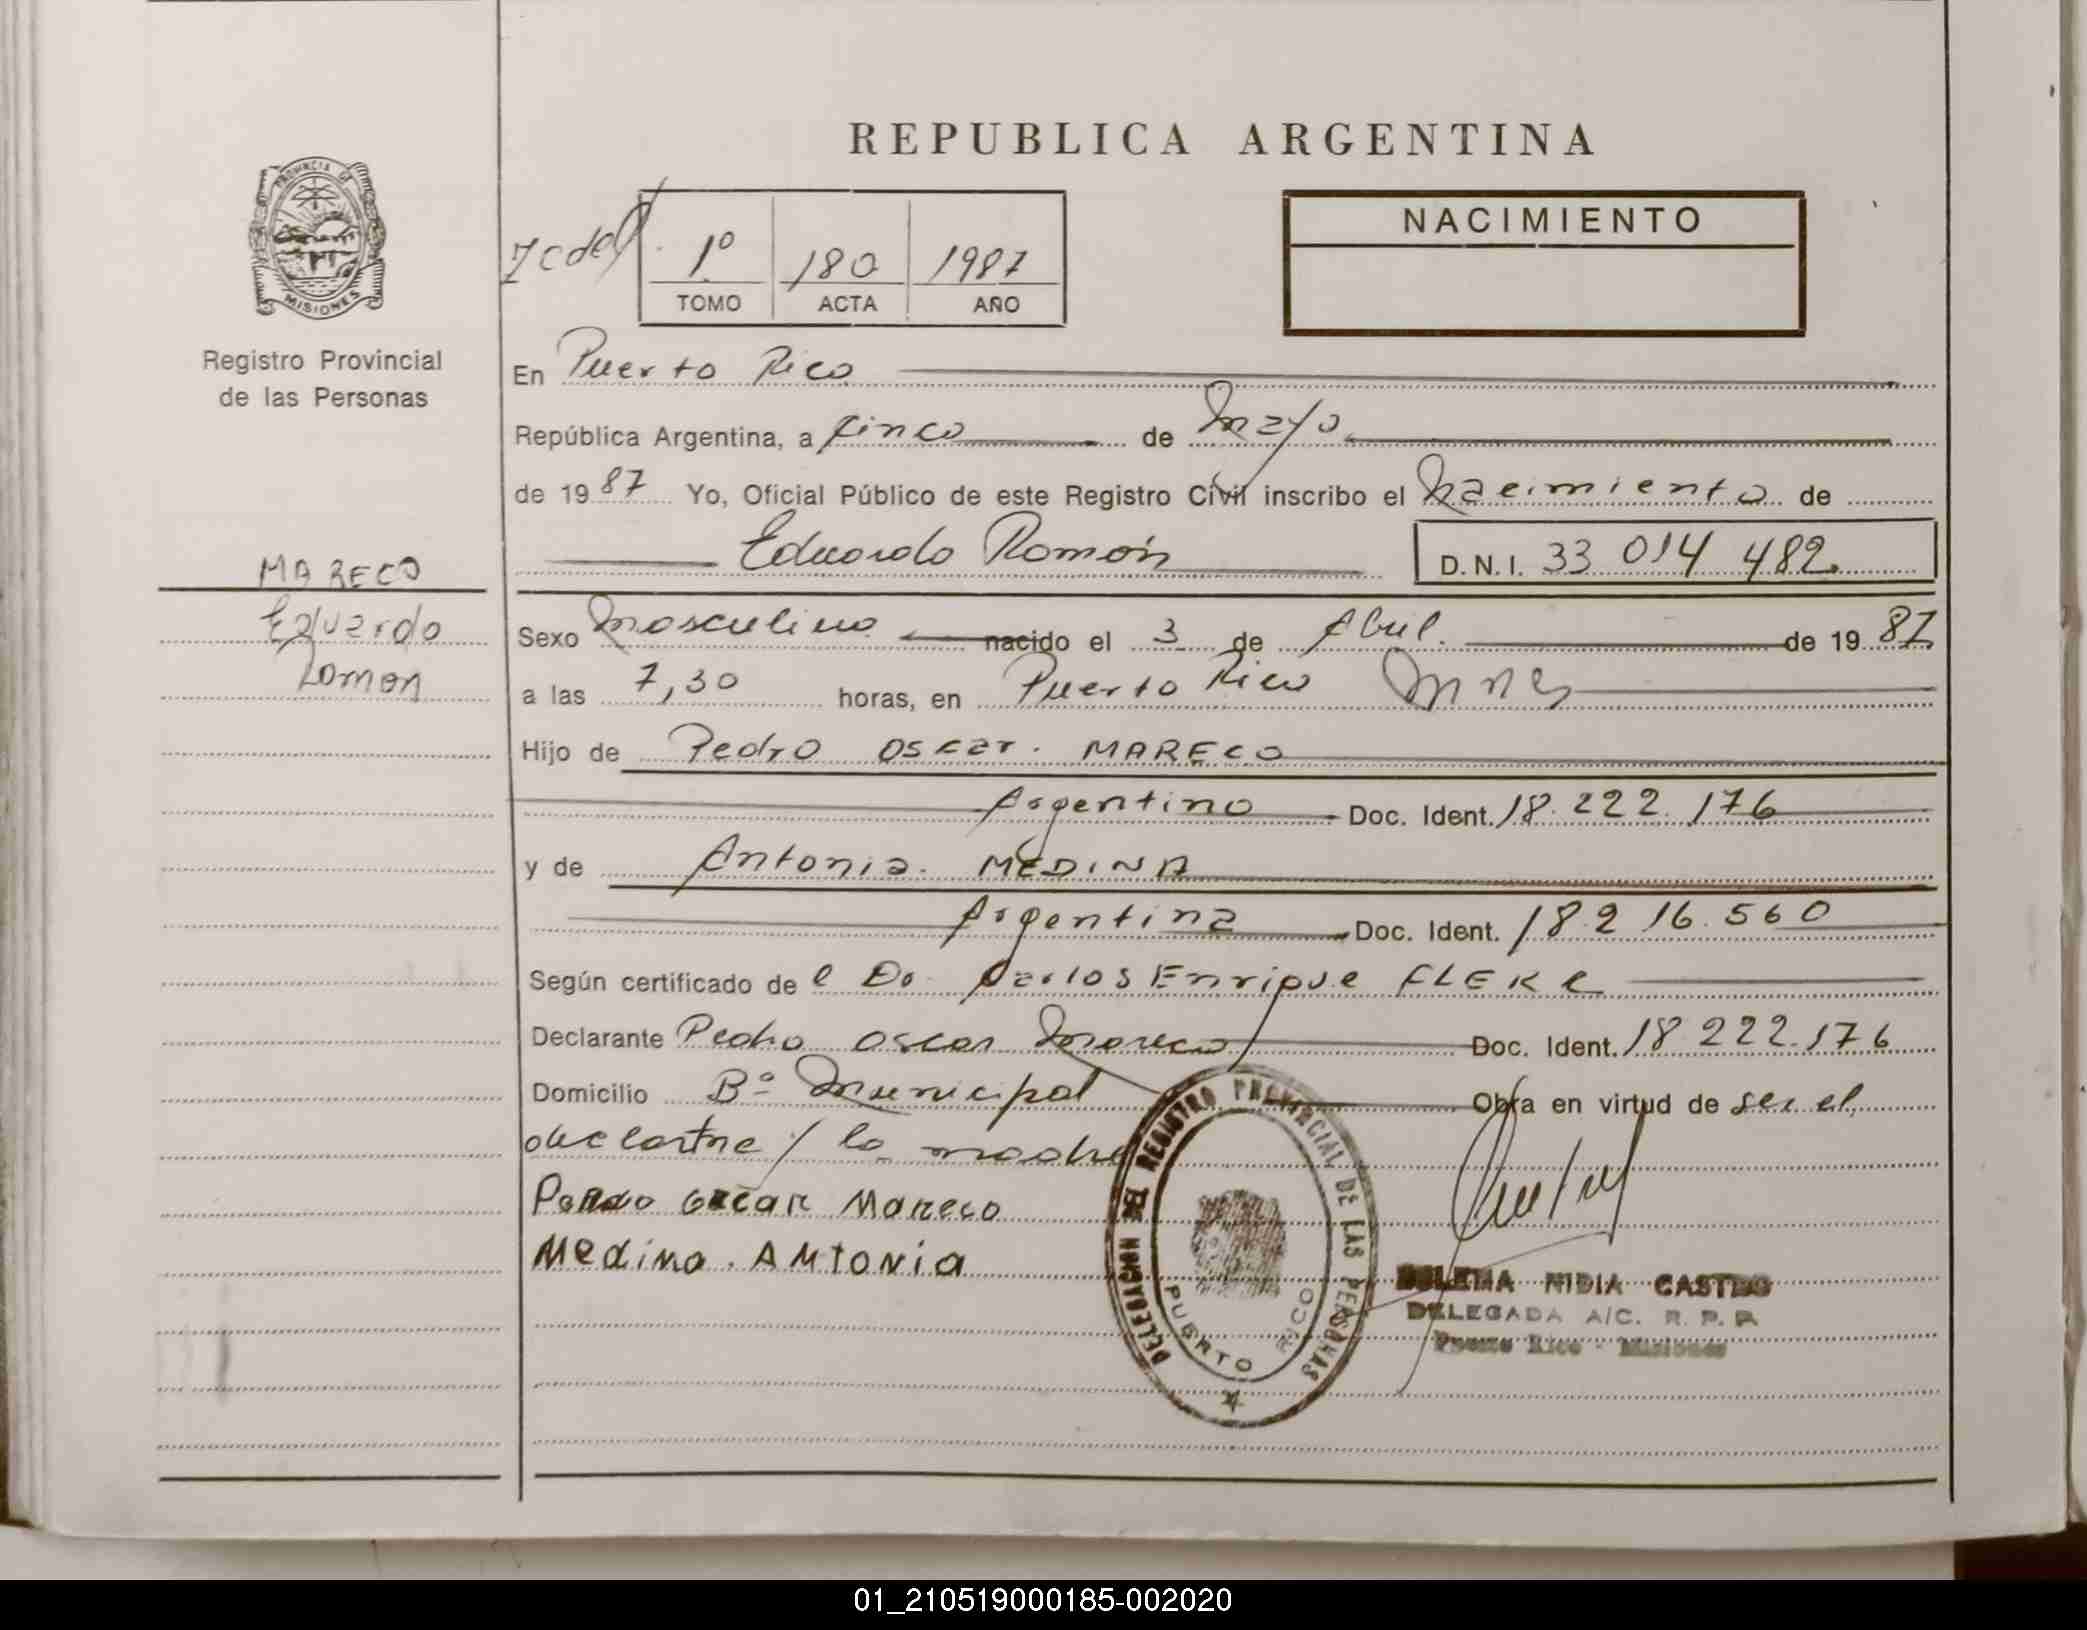 REPUBLICA ARGENTINA
PROVINCIA DE
MISIONES
Registro Provincial
de las Personas
1º 180 1987
TOMO ACTA AÑO
NACIMIENTO
En Puerto Rico
República Argentina, a cinco de Mayo
de 1987 Yo, Oficial Público de este Registro Civil inscribo el Nacimiento de
Eduardo Ramón D.N.I. 33 014 482
MARECO
Eduardo
Ramon
Sexo Masculino nacido el 3 de Abril de 1987
a las 7,30 horas, en Puerto Rico Mnes
Hijo de Pedro Oscar MARECO
Argentino Doc. Ident. 18.222.176
y de Antonia MEDINA
Argentina Doc. Ident. 18.216.560
Según certificado del Dr. Carlos Enrique
Declarante Pedro Oscar Mareco Doc. Ident. 18.222.176
Domicilio Bº Municipal Obra en virtud de ser el
declartne/ la madre
Oscar Mareco
Medina. Antonia
DELEGACION DEL REGISTRO PROVINCIAL DE LAS PERSONAS
PUERTO RICO
NIDIA CASTRO
DELEGADA A/C. R. P. P.
Puerto Rico - Misiones
01_210519000185-002020